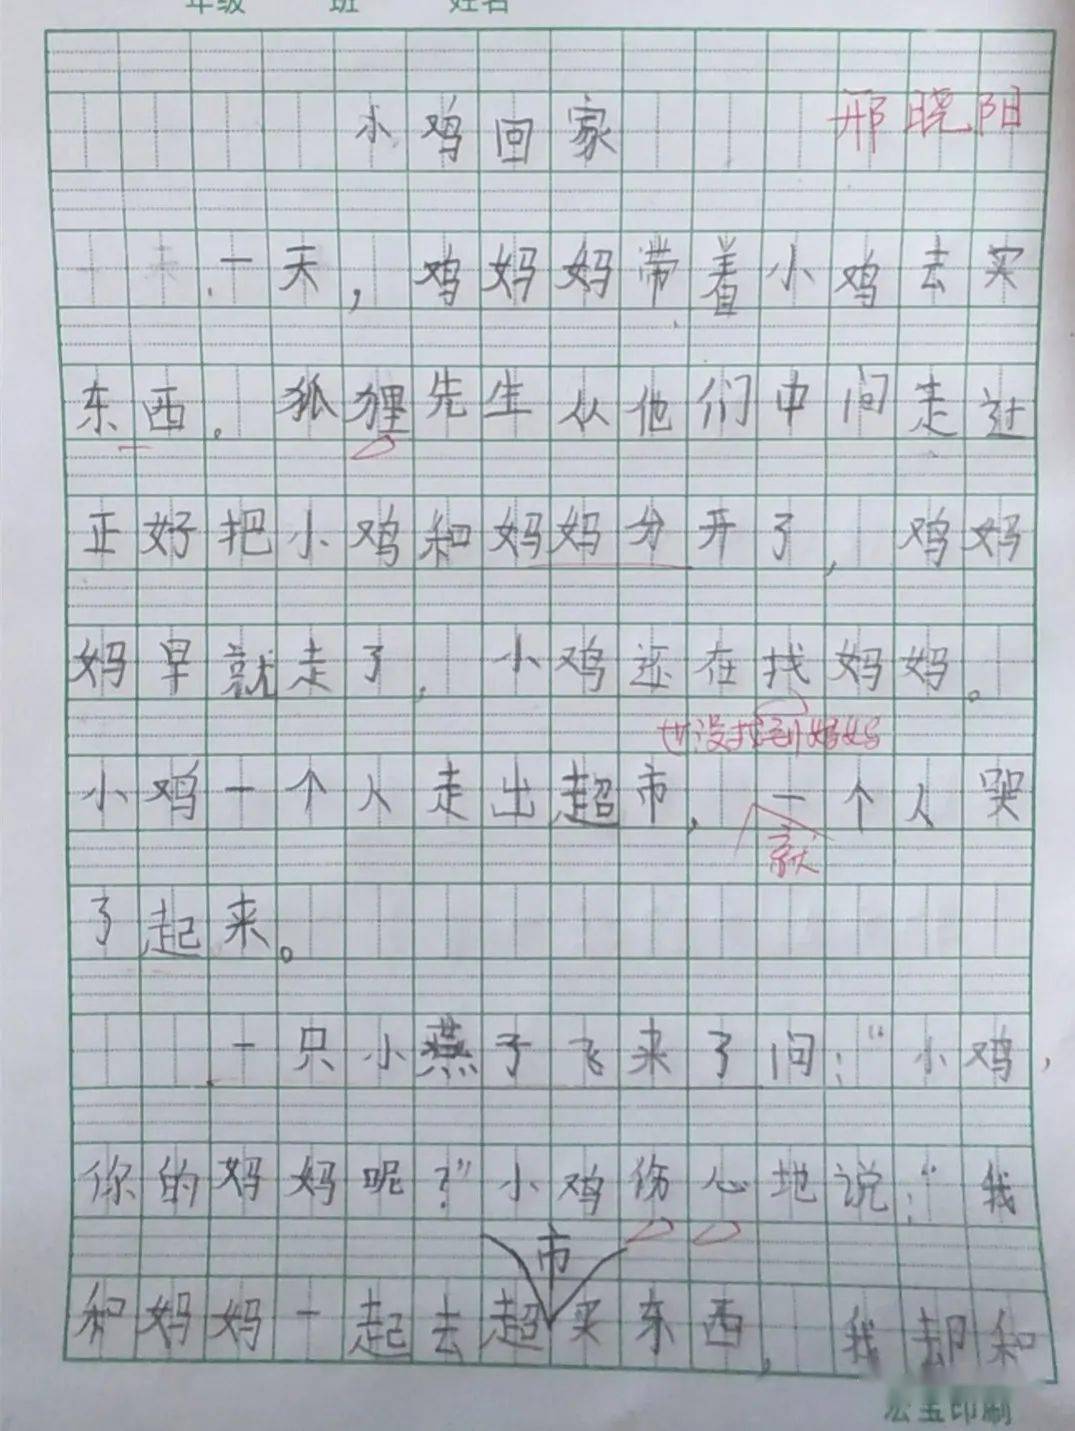 年级 班 姓名
小鸡回家 邢晓阳
一天，鸡妈妈带着小鸡去买
东西。狐狸先生从他们中间走过
正好把小鸡和妈妈分开了，鸡妈
妈早就走了，小鸡还在找妈妈。
也没找到妈妈
小鸡一个人走出超市，一个人哭
就
了起来。
一只小燕子飞来了问：“小鸡，
你的妈妈呢？”小鸡伤心地说：“我
市
和妈妈一起去超买东西，我却和
宏宝印刷